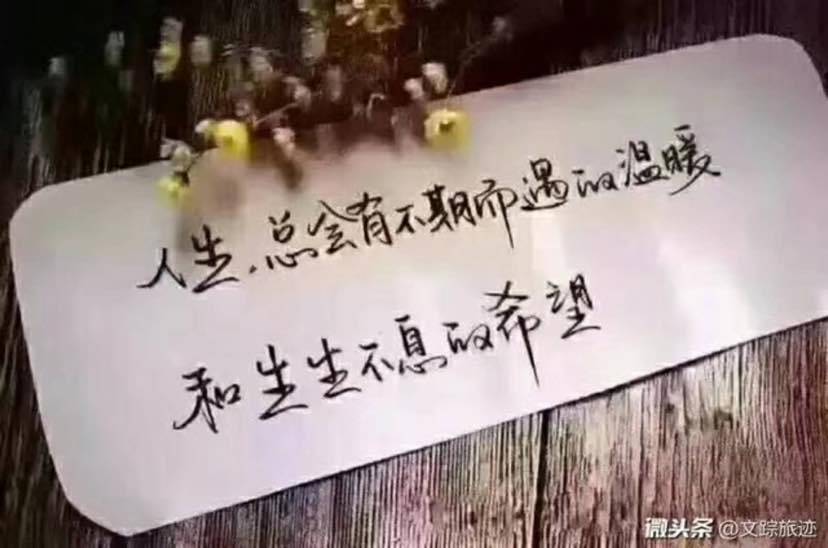 人生,总会有不期而遇的温暖
和生生不息的希望
微头条 @文踪旅迹